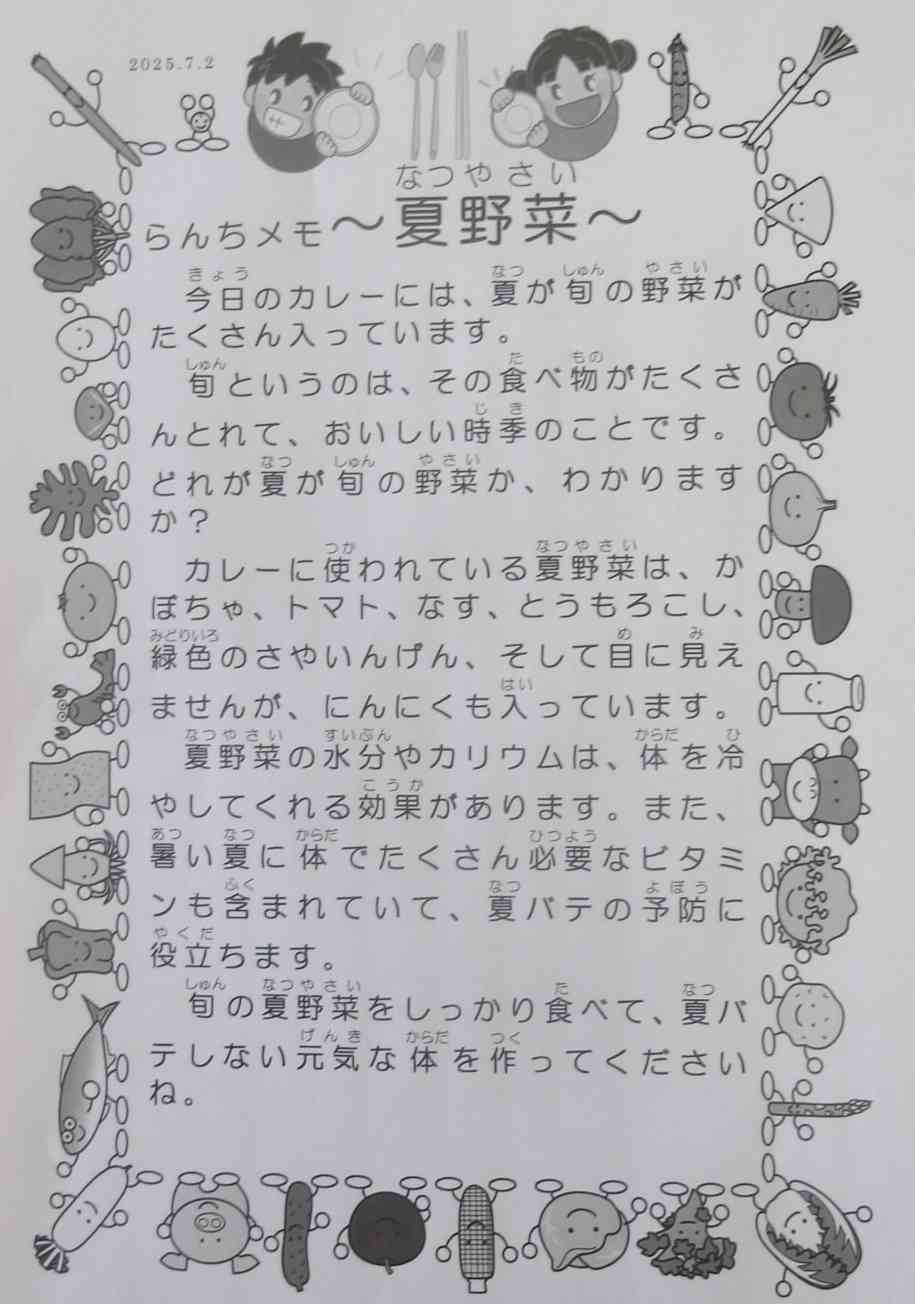 2025.7.2
なつやさい
らんちメモ～夏野菜～
きょう なつ しゅん やさい
今日のカレーには、夏が旬の野菜が
たくさん入っています。
しゅん た もの
旬というのは、その食べ物がたくさ
じき
んとれて、おいしい時季のことです。
なつ しゅん やさい
どれが夏が旬の野菜か、わかります
か？
つか なつやさい
カレーに使われている夏野菜は、か
ぼちゃ、トマト、なす、とうもろこし、
みどりいろ め み
緑色のさやいんげん、そして目に見え
はい
ませんが、にんにくも入っています。
なつやさい すいぶん からだ ひ
夏野菜の水分やカリウムは、体を冷
こうか
やしてくれる効果があります。また、
あつ なつ からだ ひつよう
暑い夏に体でたくさん必要なビタミ
ふく なつ よぼう
ンも含まれていて、夏バテの予防に
やくだ
役立ちます。
しゅん なつやさい た なつ
旬の夏野菜をしっかり食べて、夏バ
げんき からだ つく
テしない元気な体を作ってください
ね。